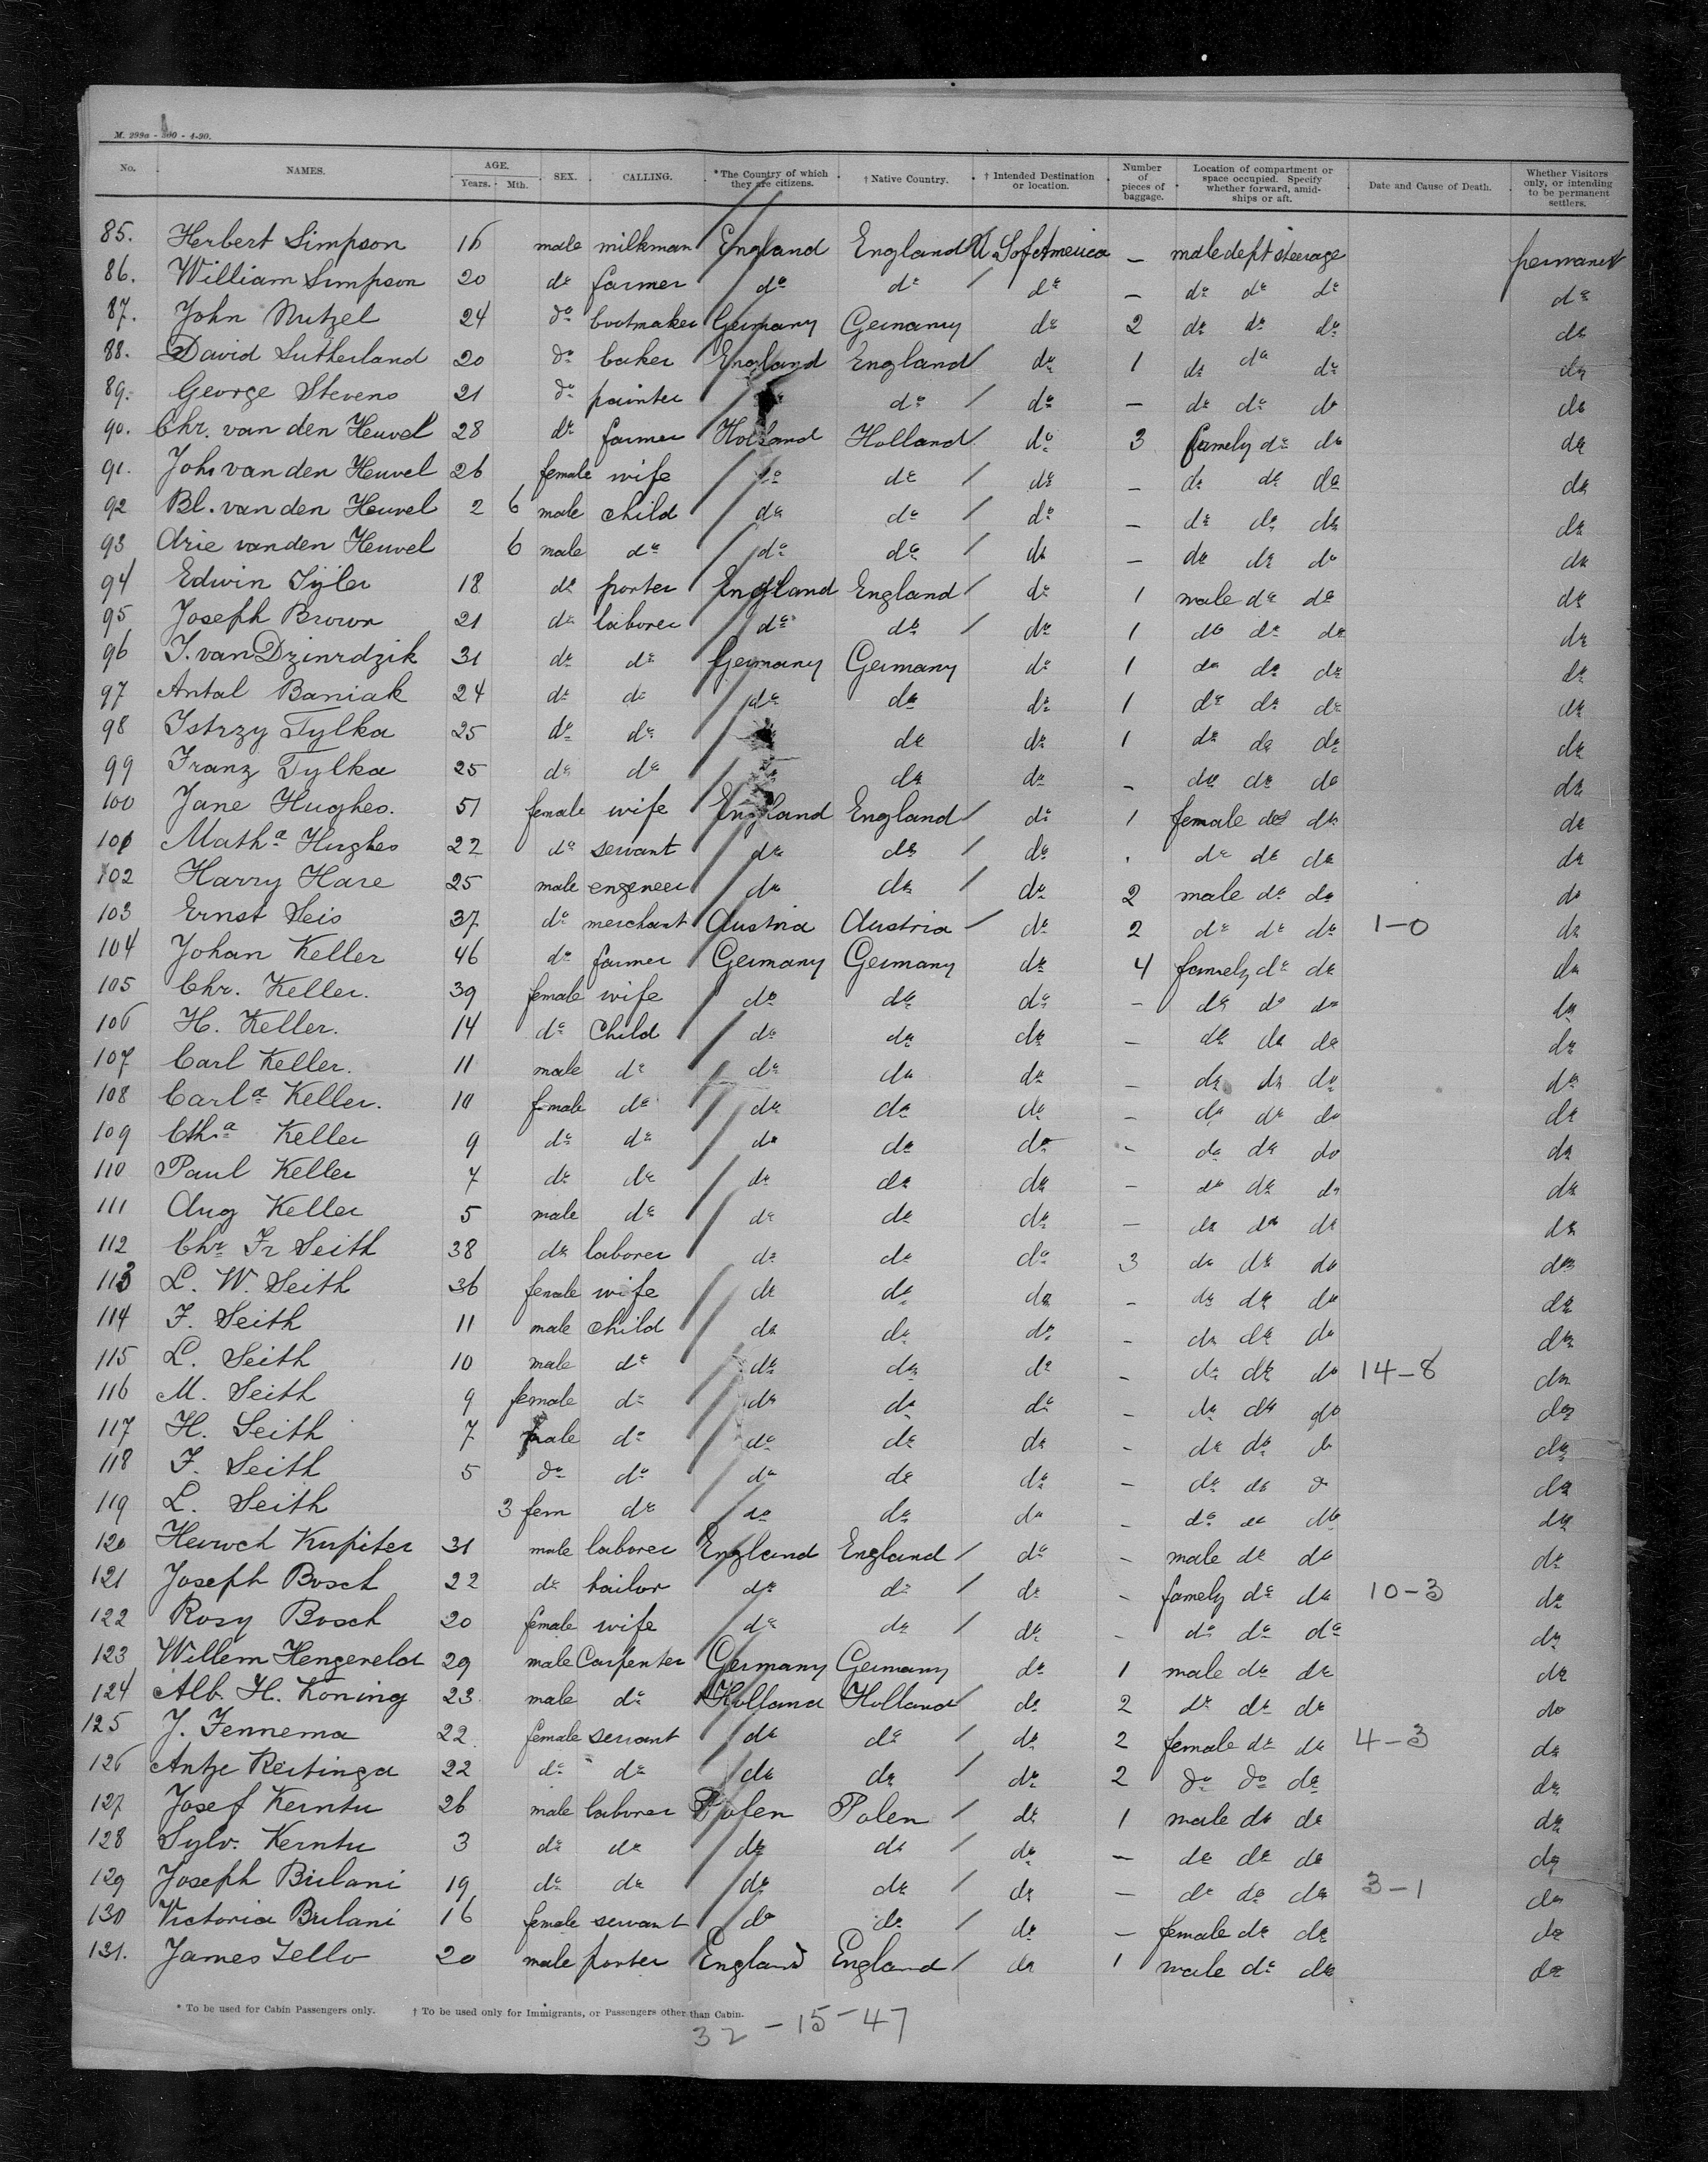 M. 299a - 500 - 4-90.
No. NAMES. AGE. Years. Mth. SEX. CALLING. *The Country of which they are citizens. † Native Country. † Intended Destination or location. Number of pieces of baggage. Location of compartment or space occupied. Specify whether forward, amidships or aft. Date and Cause of Death. Whether Visitors only, or intending to be permanent settlers.
85. Herbert Simpson 16 male milkman England England U. S of America — male dept steerage permanent
86. William Simpson 20 do farmer do do do — do do do do
87. John Nutzel 24 do bootmaker Germany Germany do 2 do do do do
88. David Sutherland 20 do baker England England do 1 do do do do
89. George Stevens 21 do painter do do — do do do do
90. Chr. van den Heuvel 28 do farmer Holland Holland do 3 famely do do do
91. Joh. van den Heuvel 26 female wife do do do — do do do do
92 Bl. van den Heuvel 2 6 male child do do do — do do do do
93 Arie van den Heuvel 6 male do do do do — do do do do
94 Edwin Tÿler 18 do porter England England do 1 male do do do
95 Joseph Brown 21 do laborer do do do 1 do do do do
96 J. van Dzinrdzik 31 do do Germany Germany do 1 do do do do
97 Antal Baniak 24 do do do do do 1 do do do do
98 Istrzy Tylka 25 do do do do 1 do do do do
99 Franz Tylka 25 do do do do do - do do do do
100 Jane Hughes. 51 female wife England England do 1 female do do do
101 Matha Hughes 22 do servant do do do . do do do do
102 Harry Hare 25 male engeneer do do do 2 male do do do
103 Ernst Seis 37 do merchant Austria Austria do 2 do do do 1-0 do
104 Johan Keller 46 do farmer Germany Germany do 4 famely do do do
105 Chr. Keller. 39 female wife do do do - do do do do
106 H. Keller. 14 do child do do do - do do do do
107 Carl Keller. 11 male do do do do - do do do do
108 Carla Keller. 10 female do do do do - do do do do
109 Ctha Keller 9 do do do do do - do do do do
110 Paul Keller 7 do do do do do - do do do do
111 Aug Keller 5 male do do do do - do do do do
112 Chr Fr Seith 38 do laborer do do do 3 do do do do
113 L. W. Seith 36 female wife do do do - do do do do
114 F. Seith 11 male child do do do - do do do do
115 L. Seith 10 male do do do do - do do do 14-8 do
116 M. Seith 9 female do do do do - do do do do
117 H. Seith 7 male do do do do - do do do do
118 F. Seith 5 do do do do do - do do do do
119 L. Seith 3 fem do do do do - do do do do
120 Kupiter 31 male laborer England England do - male do do do
121 Joseph Bosch 22 do tailor do do do - famely do do 10-3 do
122 Rosy Bosch 20 female wife do do do - do do do do
123 Willem Hengeveld 29 male Carpenter Germany Germany do 1 male do do do
124 Alb. H. Koning 23 male do Holland Holland do 2 do do do do
125 J. Fennema 22 female servant do do do 2 female do do 4-3 do
126 Antje Reitinga 22 do do do do do 2 do do do do
127 Josef Kerntu 26 male laborer Polen Polen do 1 male do do do
128 Sylv. Kerntu 3 do do do do do — do do do do
129 Joseph Bulani 19 do do do do do — do do do 3-1 do
130 Victoria Bulani 16 female servant do do do — female do do do
131. James Zello 20 male porter England England do 1 male do do do
* To be used for Cabin Passengers only. † To be used only for Immigrants, or Passengers other than Cabin.
32-15-47